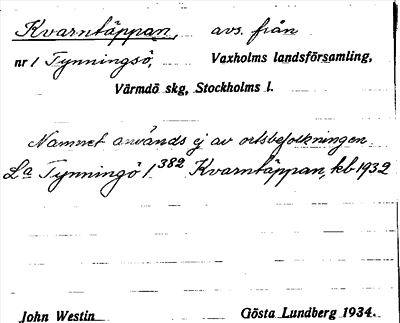 Kvarntäppan, avs. från
nr 1 Tynningsö, Vaxholms landsförsamling,
Värmdö skg, Stockholms l.
Namnet används ej av ortsbefolkningen
La Tynningö 1 382 Kvarntäppan, kb 1932
John Westin Gösta Lundberg 1934.